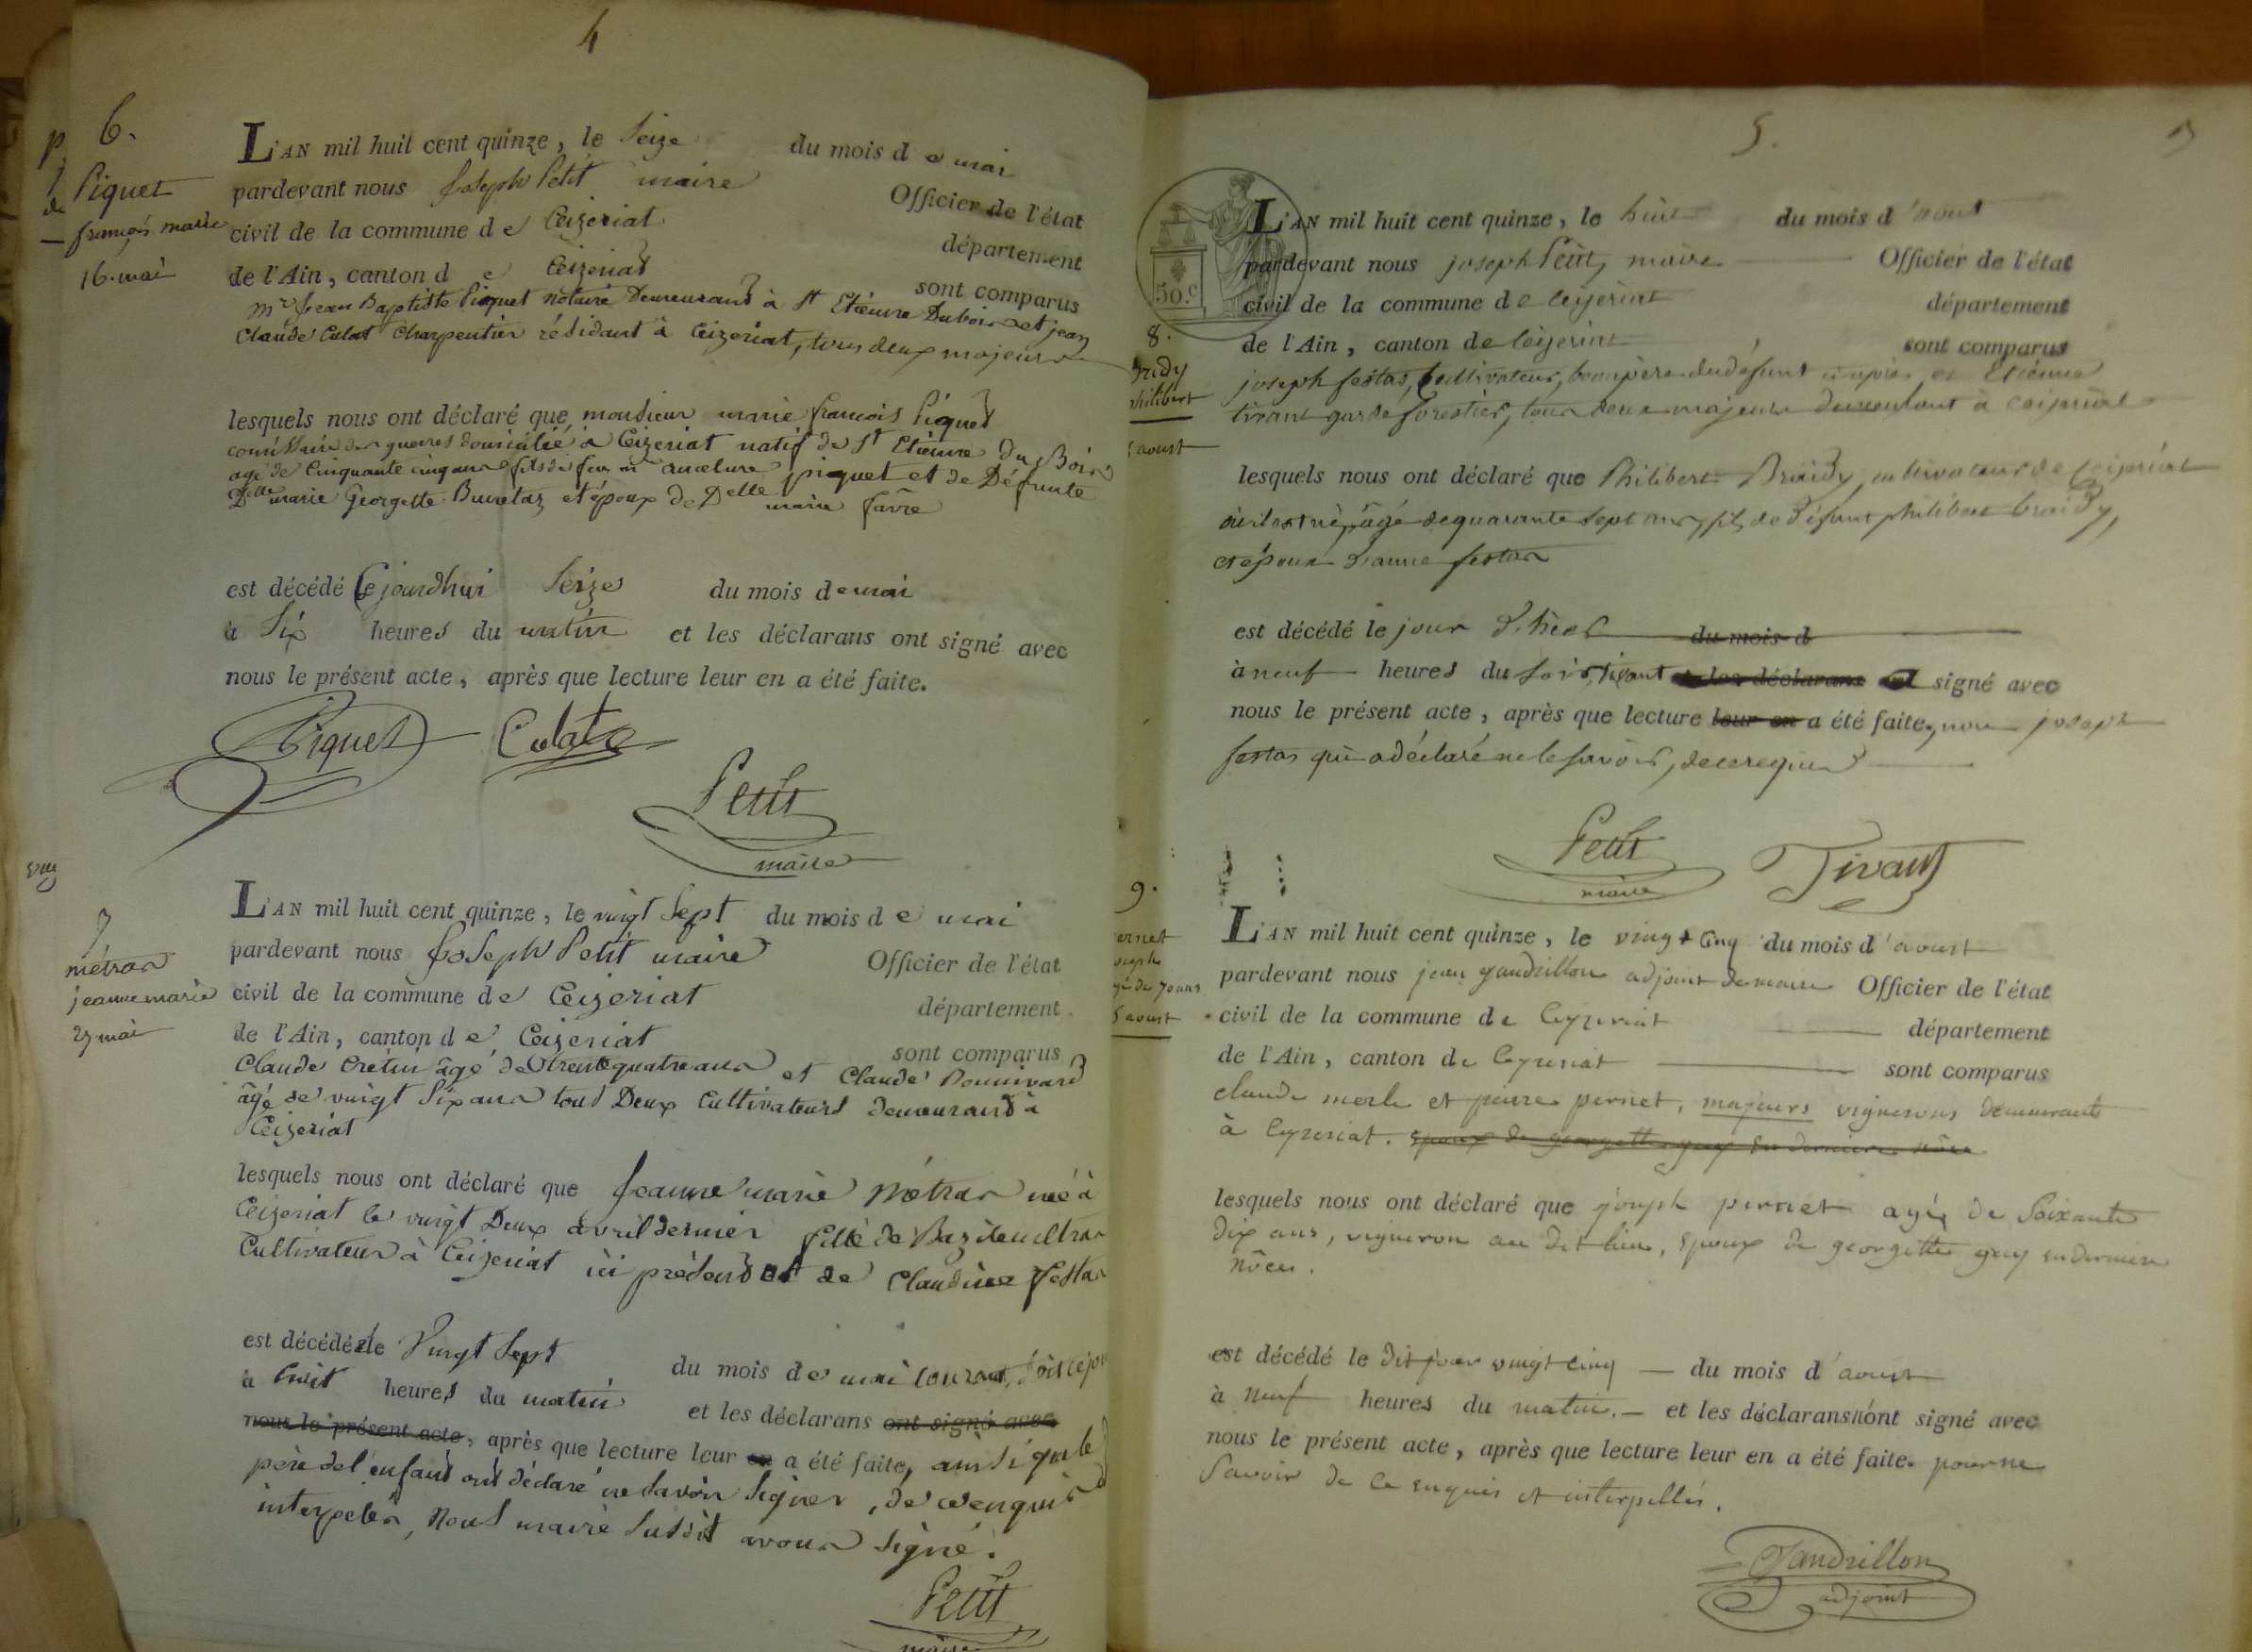 4
p 6.
Piquet
de
françois marie
16. mai
L'AN mil huit cent quinze, le Seize du mois d e mai
pardevant nous Joseph Petit maire Officier de l'état
civil de la commune d e Ceizeriat département
de l'Ain, canton d e Ceizeriat sont comparus
Mr Jean Baptiste Piquet notaire Demeurant à St Etienne Dubois et jean
Claude Culat Charpentier résidant à Ceizeriat, tous deux majeurs
lesquels nous ont déclaré que monsieur marie françois Piquet
commissaire des guerres domicilié à Ceizeriat natif de St Etienne du Bois
agé de Cinquante cinq ans fils de feu mr piquet et de Défunte
Delle marie Georgette et époux de Delle marie favre
est décédé Cejourdhui Seize du mois de mai
à Six heures du matin et les déclarans ont signé avec
nous le présent acte, après que lecture leur en a été faite.
Piquet Culat
Petit
maire
7
métras
jeanne marie
27 mai
L'AN mil huit cent quinze, le vingt Sept du mois d e mai
pardevant nous Joseph Petit maire Officier de l'état
civil de la commune de Ceizeriat département
de l'Ain, canton d e Ceizeriat sont comparus
Claude Cretin âgé de trente quatre ans et Claude Bonnivard
âgé de vingt Six ans tous Deux Cultivateurs demeurants à
Ceizeriat
lesquels nous ont déclaré que Jeanne marie Métras née à
Ceizeriat le vingt Deux avril dernier fille de Bazile metras
Cultivateur à Ceizeriat ici présent et de Claudine festas
est décédée le Vingt Sept du mois de mai courant, soit ce jour
à huit heures du matin et les déclarans ont signé avec
nous le présent acte, après que lecture leur en a été faite, ainsi que le
père de l'enfant ont déclaré ne savoir signer, de ce enquis et
interpelés, Nous maire susdit avons signé.
Petit
maire
5.
50.c
8.
Philibert
aoust
L'AN mil huit cent quinze, le huit du mois d'aout
pardevant nous joseph Petit, maire Officier de l'état
civil de la commune de Ceizeriat département
de l'Ain, canton de Ceizeriat sont comparus
joseph festas, cultivateur, beaupère du défunt ci après et Etienne
tivant garde forestier, tous deux majeurs demeurant à Ceizeriat
lesquels nous ont déclaré que Philibert Braidy cultivateur de Ceizeriat
où il est né, âgé de quarante sept ans, fils de défunt philibert braidy,
et époux d'anne festas
est décédé le jour d'hier du mois d
à neuf heures du soir, tivant et les déclarans ont signé avec
nous le présent acte, après que lecture leur en a été faite, non joseph
festas qui a déclaré ne le savoir, de ce requis
Petit
maire
Tivant
9.
ernet
oseph
gé de 70 ans
5 aoust
L'AN mil huit cent quinze, le vingt cinq du mois d'aoust
pardevant nous jean gandrillon adjoint de maire Officier de l'état
civil de la commune de Ceyzeriat département
de l'Ain, canton de Ceyzeriat sont comparus
claude merle et pierre pernet, majeurs vignerons demeurants
à Ceyzeriat. époux de georgette guy en derniere nôce
lesquels nous ont déclaré que joseph pernet agé de Soixante
dix ans, vigneron au dit lieu, époux de georgette guy en derniere
nôces.
est décédé le dit jour vingt cinq du mois d'aoust
à neuf heures du matin. et les déclarans n'ont signé avec
nous le présent acte, après que lecture leur en a été faite. pour ne
Savoir de ce enquis et interpellés.
Gandrillon
adjoint